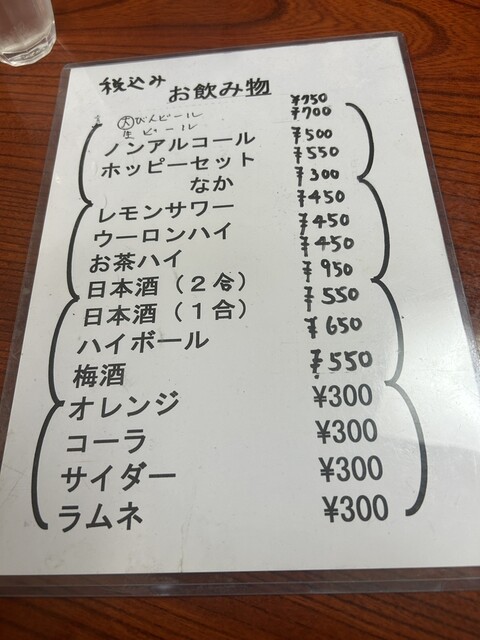 税込み
お飲み物
大びんビール ¥750
生ビール ¥700
ノンアルコール ¥500
ホッピーセット ¥550
なか ¥300
レモンサワー ¥450
ウーロンハイ ¥450
お茶ハイ ¥450
日本酒（２合） ¥950
日本酒（１合） ¥550
ハイボール ¥650
梅酒 ¥550
オレンジ ¥300
コーラ ¥300
サイダー ¥300
ラムネ ¥300